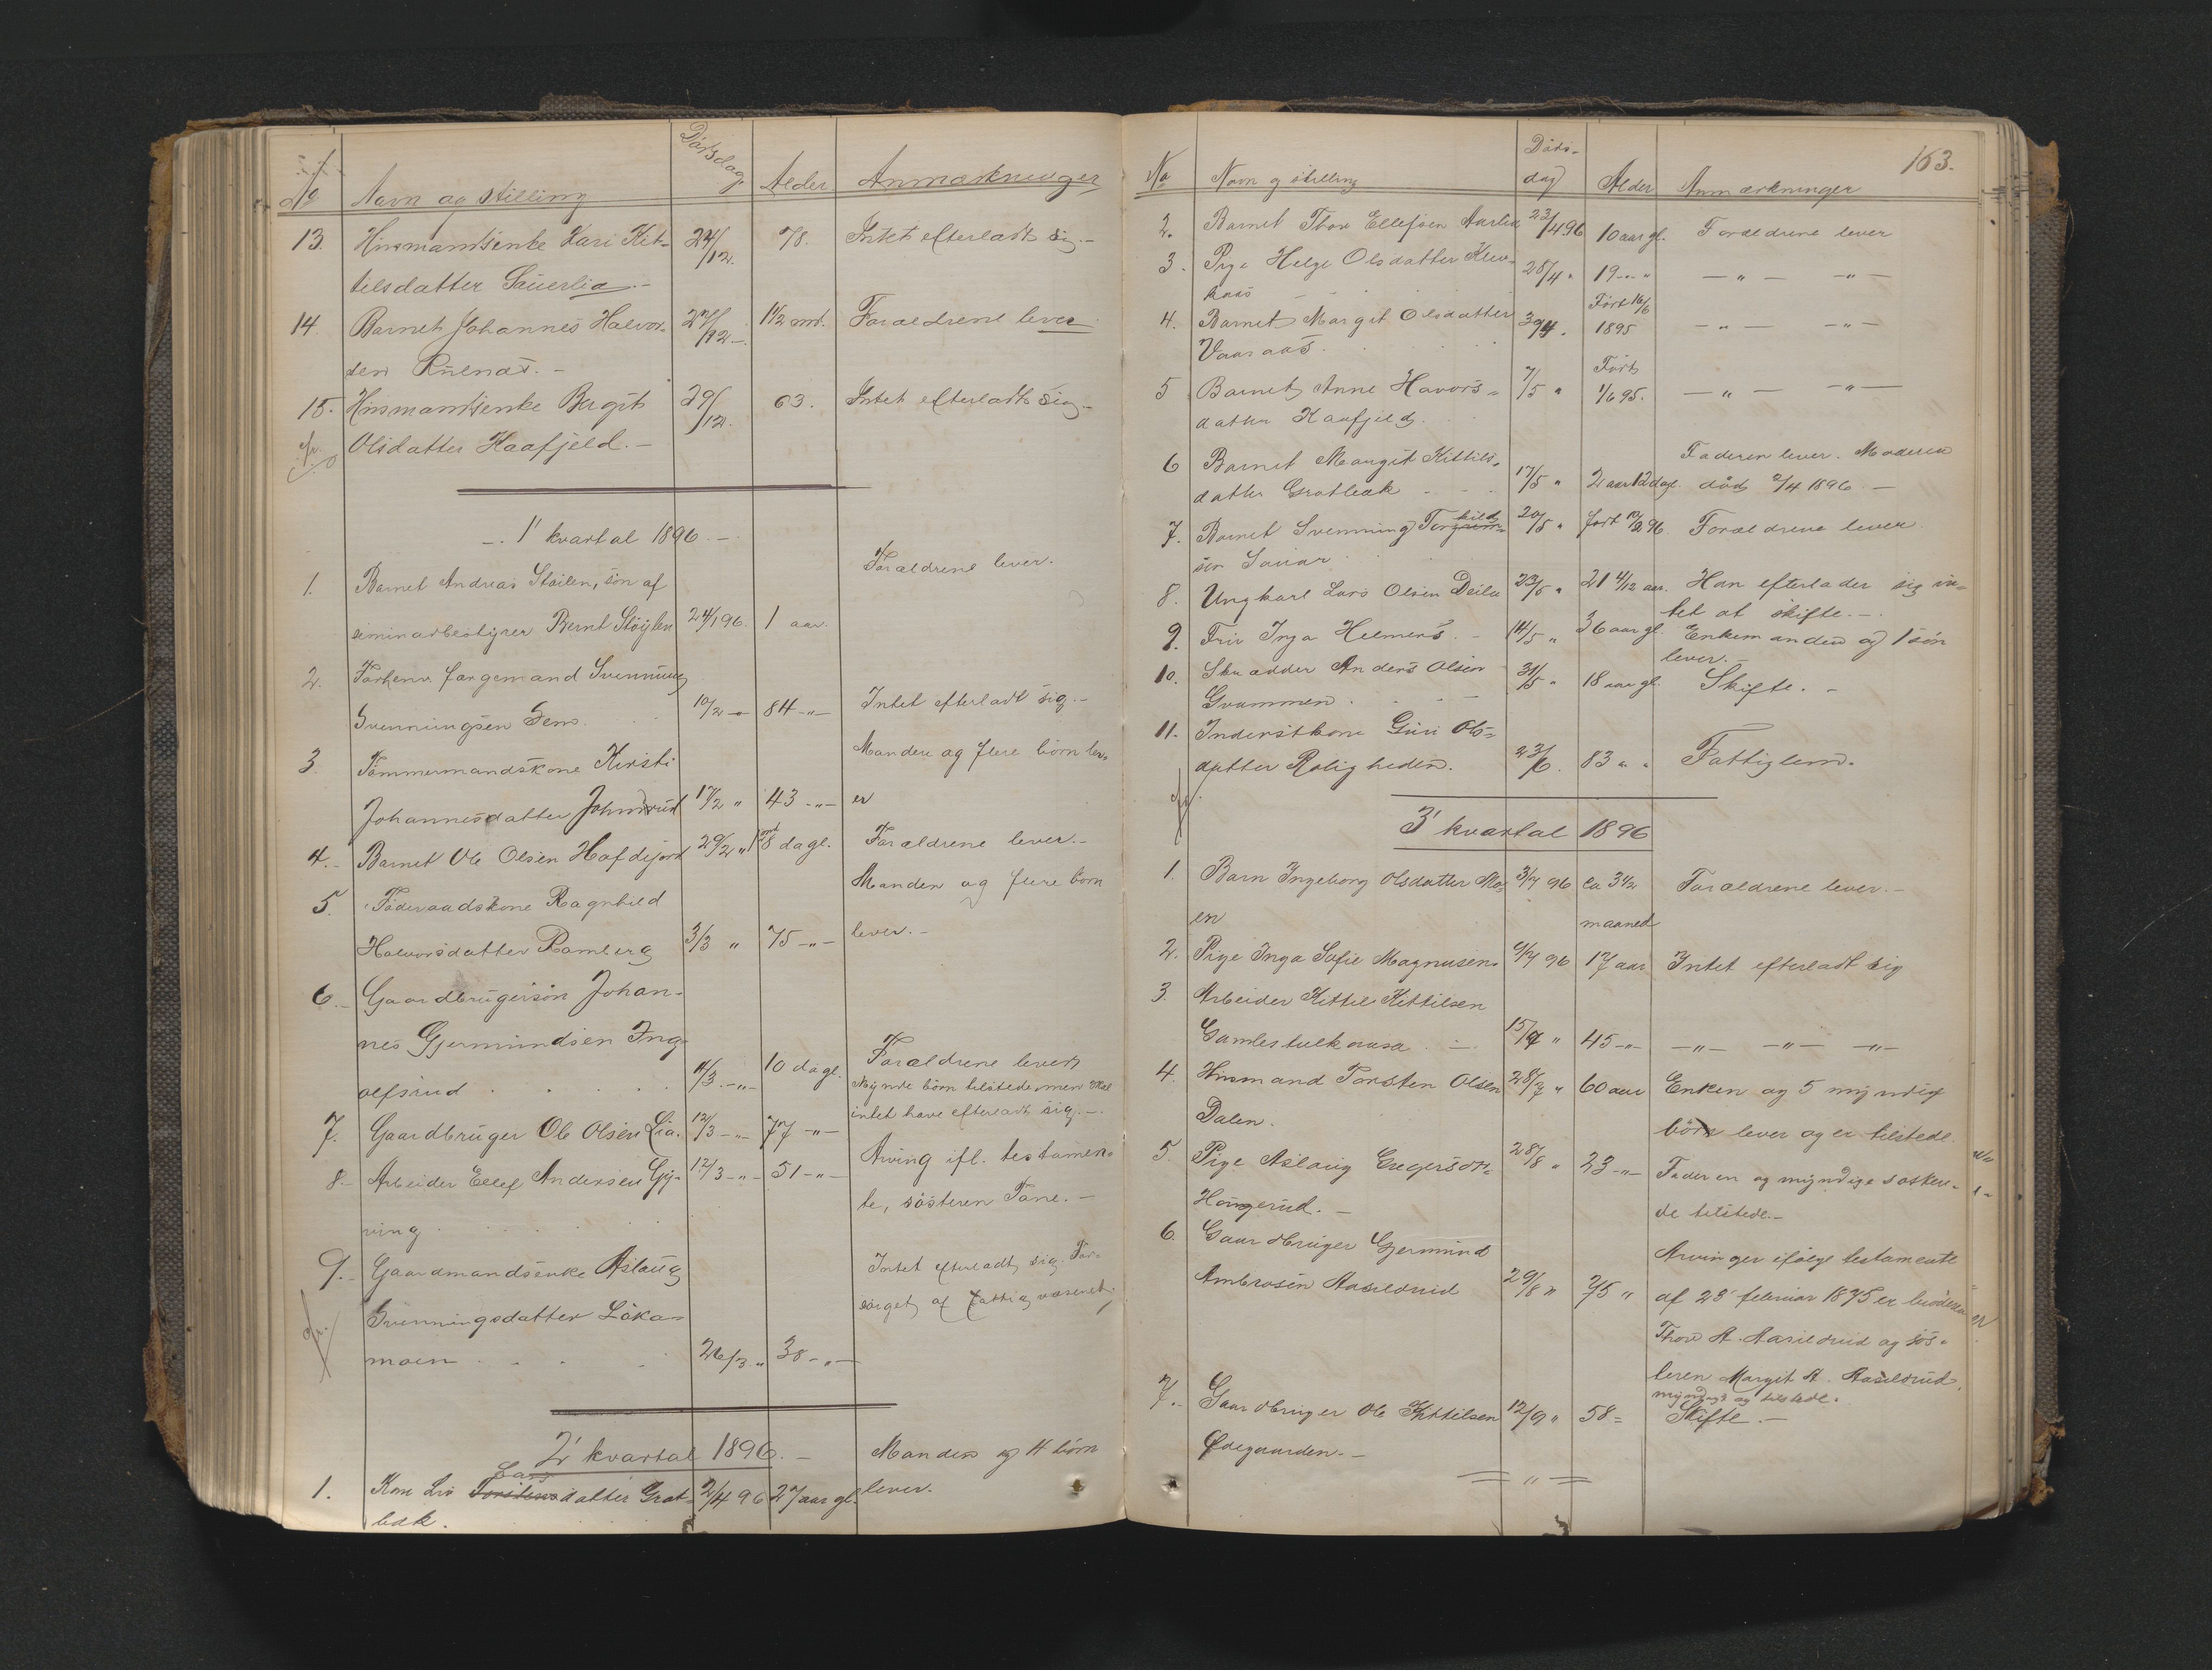 No Navn og stilling Dødsdag. Alder. Anmærkninger
13. Husmandsenke Kari Kit- 24/12. 78. Intet efterladt sig.-
tilsdatter Sauerlia.-
14. Barnet Johannes Halvor- 27/12.- 1 1/2 md. Forældrene lever
sen Ruenæs.-
15. Husmandsenke Bergit 29/12. 63. Intet efterladt sig.-
Olsdatter Haafjeld.-
-. 1' kvartal 1896.-
1. Barnet Andreas Støilen, søn af Forældrene lever.
seminarbestyrer Bernt Støylen 24/1 96. 1 aar.
2. Forhenv. forgemand Svennung
Svennungsen Tem. 10/2 -"- 84 -"- Intet efterladt sig.-
3. Tømmermandskone Kirsti Manden og flere børn lev-
Johannesdatter Johnsrud 17/2 " 43 -"- er
4.- Barnet Ole Olsen Hafdejord 29/2 " 8 dagl. Forældrene lever.-
5. Føderaadskone Ragnhild Manden og flere børn
Halvorsdatter Ramberg 3/3 " 75 -"- lever.-
6.- Gaardbrugersøn Johan-
nes Gjermundsen Ing-
olfsrud 11/3.-"- 10 dagl. Forældrene lever
Mynde børn tilstede, men skal
intet have efterladt sig.-
7. Gaardbruger Ole Olsen Lia. 12/3 -"- 77 -"-
8.- Arbeider Ellef Andersen Gy- 12/3 -"- 51 -"- Arving ifl. testamen-
ving te, søsteren Tone.-
9.- Gaardmandsenke Aslaug Intet efterladt sig. For-
Svenningsdatter Løka- sørget af fattigvæsenet.
moen 26/3 " 38 -"-
2' kvartal 1896.- Manden og 4 børn
Lars
1. Kone Liv Torstensdatter Grat- 2/4 96 27 aar gl. lever.
bæk.
163.
No Navn og stilling Døds-
dag Alder Anmærkninger
2. Barnet Thov Ellefsen Aarlia 23/4 96 10 aar gl. Forældrene lever
3. Pige Helge Olsdatter Klev- 28/4 " 19 -"- " - " - - " -
kaas
4. Barnet Margit Olsdatter 30/4. Født 16/6
Vaaraas. 1895 - " - - " -
5 Barnet Anne Havors- 7/5 " Født
datter Haafjeld. 1/6 95. - " - - " -
6 Barnet Margit Kittils- Faderen lever. Moderen
datter Gratbæk 17/5 " 2 aar 12 dage død 2/4 1896.-
kild
7. Barnet Svenning Torgrim- 20/5 " født 10/2 96. Forældrene lever
sen Sauar
8. Ungkarl Lars Olsen Deilu 23/5 " 21 4/12 aar. Han efterlader sig in-
tet at skifte.-
9. Fru Inga Helmers.- 14/5 " 36 aar gl. Enkemanden og 1 søn
lever.-
10. Skrædder Anders Olsen 31/5 " 18 aar gl. Skifte.-
Gvammen.
11. Inderstkone Guri Ols-
datter Roligheden. 23/6. 83 " " Fattiglem.
3' kvartal 1896
1. Barn Ingeborg Olsdatter Mo- 3/7 96 ca 3 1/2 Forældrene lever.-
en maaned
2. Pige Inga Sofie Magnusen. 9/7 96 17 aar Intet efterladt sig
3. Arbeider Kittil Kittilsen
15/7 " 45 -"- -"- -"- -"-
4. Husmand Torsten Olsen 28/7 " 60 aar Enken og 5 myndige
Dalen. børn lever og er tilstede.
5. Pige Aslaug Gregersdtr- 28/8 " 23 -"- Faderen og myndige søsken-
Haugerud.- de tilstede.-
6. Gaardbruger Gjermund Arvinger ifølge testamente
Ambrosen Aasildrud 29/8 " 75 " af 23' februar 1875 er broderen
Thov A. Aasildrud og søs-
teren Margit A. Aasildrud,
myndige og tilstede.
7.- Gaardbruger Ole Kittilsen 12/9 " 58 " Skifte.-
Ødegaarden.-